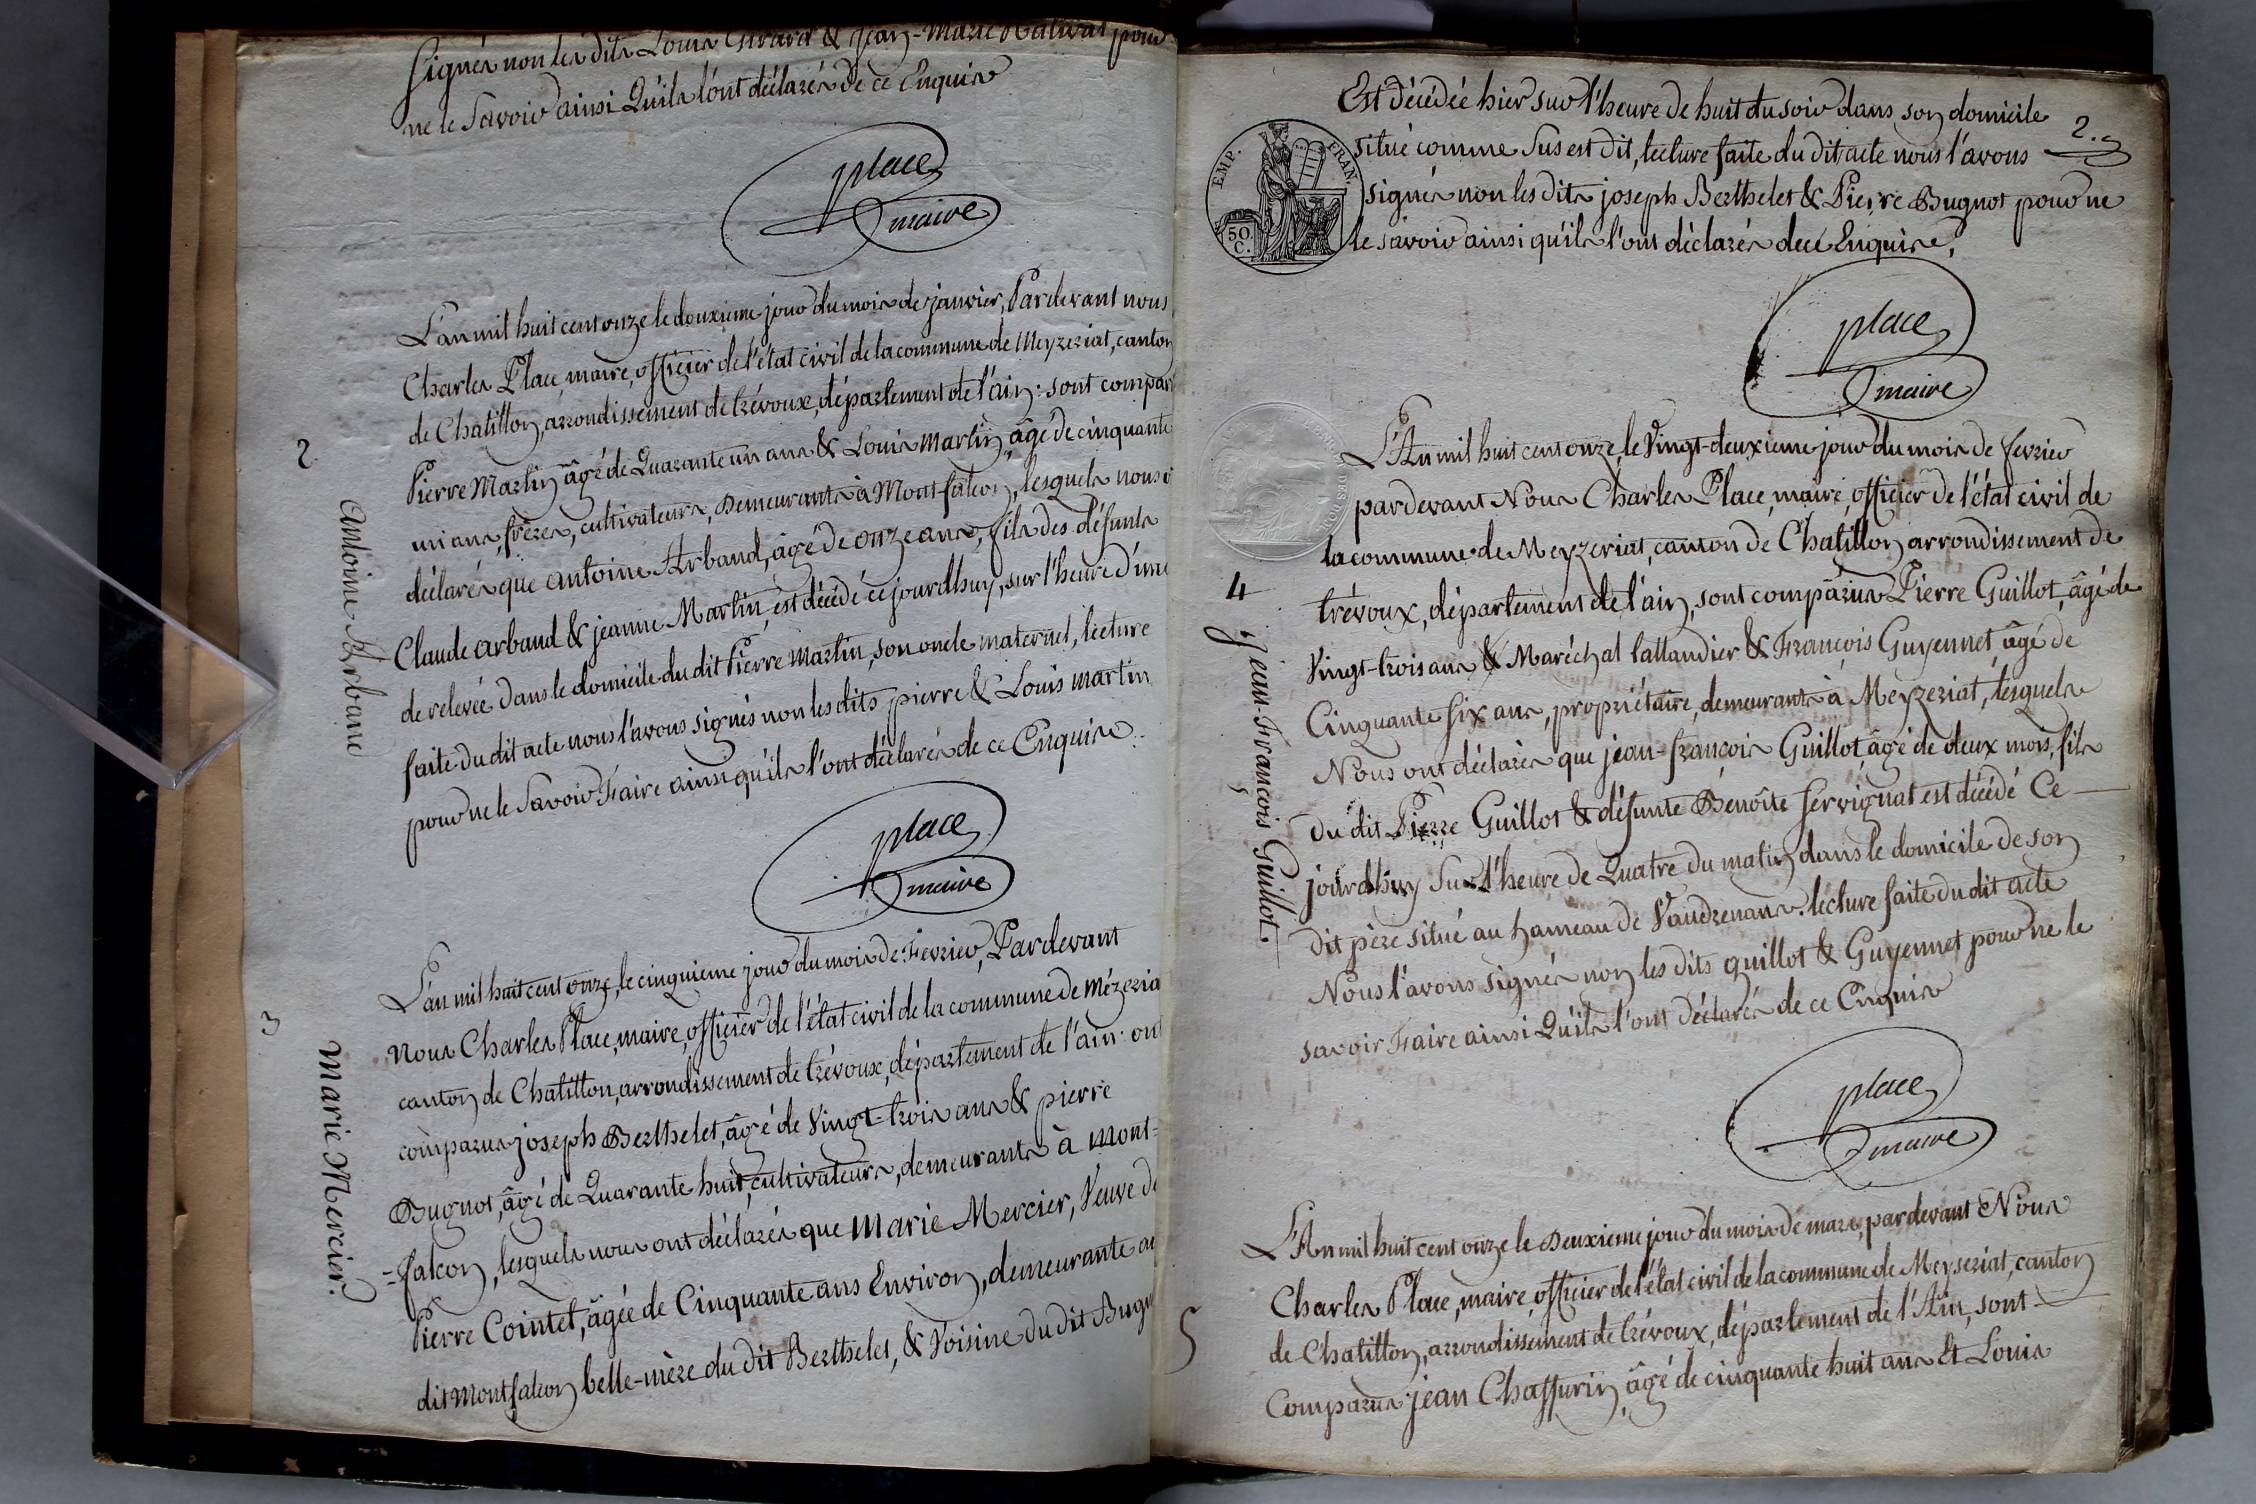 signés non les dits Louis Girard & jean-Marie pour
ne le Savoir ainsi Quils l'ont déclarés de ce Enquis
place
maire
2
Antoine Arband
L'an mil huit cent onze le deuxieme jour du mois de janvier, Pardevant nous
Charles Place, maire, officier de l'état civil de la commune de Meyzeriat, canton
de Chatillon, arrondissement de trévoux, département de l'ain: sont compar
Pierre Martin âgé de Quarante un ans & Louis Martin, âgé de cinquante
un ans, frères, cultivateurs, Demeurants à Mont-falcon, lesquels nous o
déclarés que Antoine Arband, âgé de onze ans, fils des défunts
Claude Arband & jeanne Martin, est décédé ce jourdhuy, sur l'heure d'une
de relevée dans le domicile du dit Pierre Martin, son oncle maternel, lecture
faite du dit acte nous l'avons signés non les dits pierre & Louis martin
pour ne le Savoir Faire ainsi qu'ils l'ont déclarés de ce Enquis.
place
maire
3
Marie Mercier.
L'an mil huit cent onze, le cinquieme jour du mois de Fevrier, Pardevant
Nous Charles Place, maire, officier de l'état civil de la commune de Mézeria
canton de Chatillon, arrondissement de trévoux, département de l'ain: ont
comparus joseph Berthelet, âgé de Vingt-trois ans & pierre
Bugnot, âgé de Quarante huit, cultivateurs, demeurants à Mont-
-falcon, lesquels nous ont déclarés que Marie Mercier, Veuve de
Pierre Cointet, âgée de Cinquante ans Environ, demeurante au
dit Montfalcon belle-mère du dit Berthelet, & Voisine du dit Bugn
2.
EMP. FRAN.
50.
C.
Est décédée hier sur l'heure de huit du soir dans son domicile
situé comme Sus est dit, lecture faite du dit acte nous l'avons
signés non les dits joseph Berthelet & Pierre Bugnot pour ne
le savoir ainsi qu'ils l'ont déclarés de ce Enquis.
place
maire
4
jean-François Guillot.
L'An mil huit cent onze, le Vingt-deuxieme jour du mois de fevrier
pardevant Nous Charles Place, maire, officier de l'état civil de
la commune de Meyzeriat, canton de Chatillon arrondissement de
trévoux, département de l'ain, sont comparus Pierre Guillot, âgé de
Vingt-trois ans & Maréchal tallandier & François Guyennet âgé de
Cinquante six ans, propriétaire, demeurants à Meyzeriat, lesquels
Nous ont déclarés que jean-françois Guillot, âgé de deux mois, fils
du dit Pierre Guillot & défunte Benoîte Servignat est décédé Ce
jourdhuy Sur l'heure de Quatre du matin dans le domicile de son
dit père situé au hameau de Vaudrenans. lecture faite du dit acte
Nous l'avons signés non les dits guillot & Guyennet pour ne le
savoir Faire ainsi Quils l'ont déclarés de ce Enquis
place
maire
5
L'An mil huit cent onze le Deuxieme jour du mois de mars, pardevant Nous
Charles Place, maire, officier de l'état civil de la commune de Meyseriat, canton
de Chatillon, arrondissement de trévoux, département de l'Ain, sont
Comparus jean Chaffurin, âgé de cinquante huit ans Et Louis